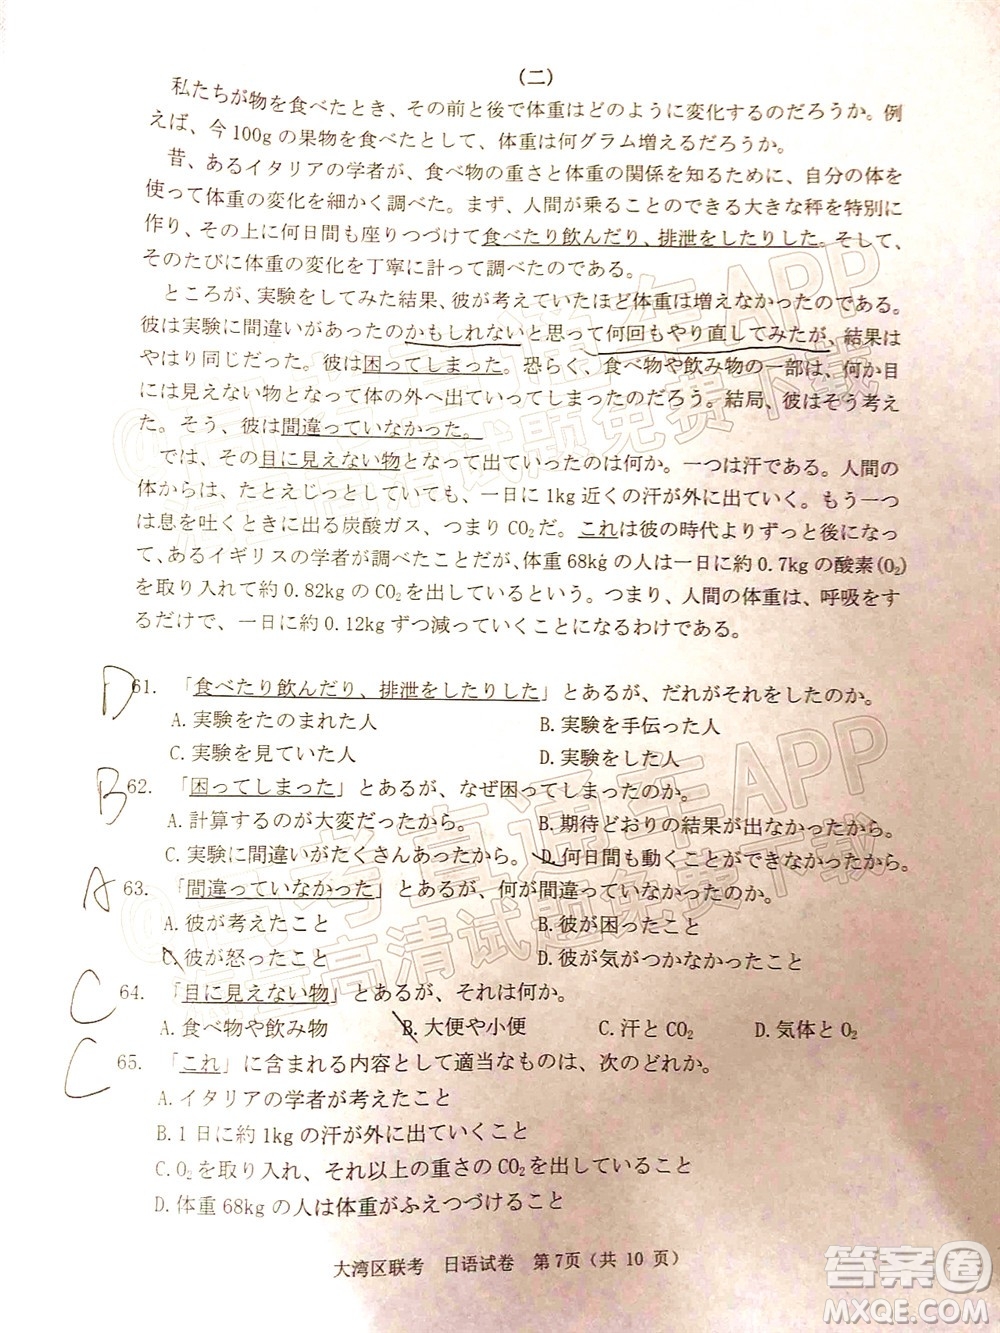 (二)
私たちが物を食べたとき、その前と後で体重はどのように変化するのだろうか。例
えば、今100gの果物を食べたとして、体重は何グラム増えるだろうか。
昔、あるイタリアの学者が、食べ物の重さと体重の関係を知るために、自分の体を
使って体重の変化を細かく調べた。まず、人間が乗ることのできる大きな秤を特別に
作り、その上に何日間も座りつづけて食べたり飲んだり、排泄をしたりした。そして、
そのたびに体重の変化を丁寧に計って調べたのである。
ところが、実験をしてみた結果、彼が考えていたほど体重は増えなかったのである。
彼は実験に間違いがあったのかもしれないと思って何回もやり直してみたが、結果は
やはり同じだった。彼は困ってしまった。恐らく、食べ物や飲み物の一部は、何か目
に見えない物となって体の外へ出ていってしまったのだろう。結局、彼はそう考え
た。そう、彼は間違っていなかった。
では、その目に見えない物となって出ていったのは何か。一つは汗である。人間の
体からは、たとえじっとしていても、一日に1kg近くの汗が外に出ていく。もう一つ
は息を吐くときに出る炭酸ガス、つまりCO₂だ。これは彼の時代よりずっと後になっ
て、あるイギリスの学者が調べたことだが、体重68kgの人は一日に約0.7kgの酸素(O₂)
を取り入れて約0.82kgのCO₂を出しているという。つまり、人間の体重は、呼吸をす
るだけで、一日に約0.12kgずつ減っていくことになるわけである。
D 61. 「食べたり飲んだり、排泄をしたりした」とあるが、だれがそれをしたのか。
A. 実験をたのまれた人 B. 実験を手伝った人
C. 実験を見ていた人 D. 実験をした人
B 62. 「困ってしまった」とあるが、なぜ困ってしまったのか。
A. 計算するのが大変だったから。 B. 期待どおりの結果が出なかったから。
C. 実験に間違いがたくさんあったから。 D. 何日間も動くことができなかったから。
A 63. 「間違っていなかった」とあるが、何が間違っていなかったのか。
A. 彼が考えたこと B. 彼が困ったこと
C. 彼が怒ったこと D. 彼が気がつかなかったこと
C 64. 「目に見えない物」とあるが、それは何か。
A. 食べ物や飲み物 B. 大便や小便 C. 汗とCO₂ D. 気体とO₂
C 65. 「これ」に含まれる内容として適当なものは、次のどれか。
A. イタリアの学者が考えたこと
B. 1日に約1kgの汗が外に出ていくこと
C. O₂を取り入れ、それ以上の重さのCO₂を出していること
D. 体重68kgの人は体重がふえつづけること
大湾区联考 日语试卷 第7页(共 10 页)
@高考直通车APP
海量高清试题免费下载
@高考直通车APP
海量高清试题免费下载
答案圈
MXQE.COM